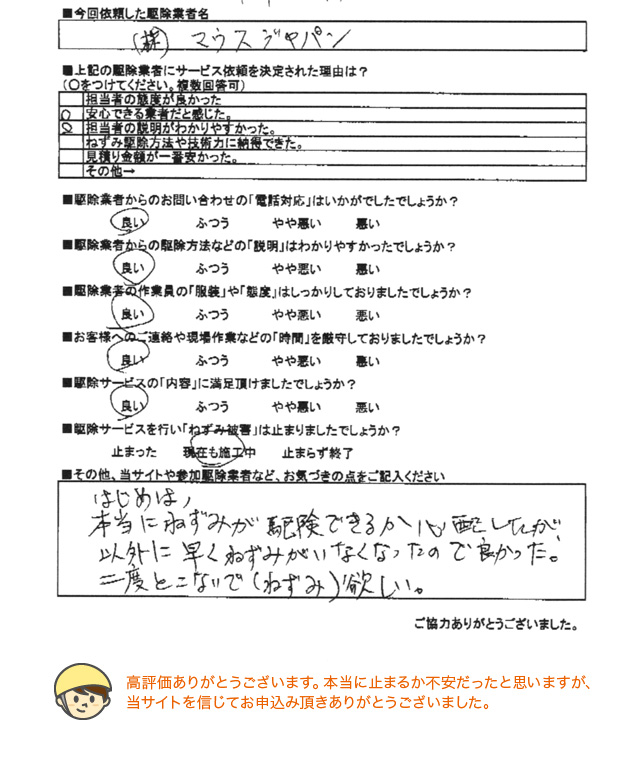 ■今回依頼した駆除業者名
(株) マウスジャパン
■上記の駆除業者にサービス依頼を決定された理由は？
（○をつけてください。複数回答可）
担当者の態度が良かった
○ 安心できる業者だと感じた。
○ 担当者の説明がわかりやすかった。
ねずみ駆除方法や技術力に納得できた。
見積り金額が一番安かった。
その他→
■駆除業者からのお問い合わせの「電話対応」はいかがでしたでしょうか？
良い ふつう やや悪い 悪い
■駆除業者からの駆除方法などの「説明」はわかりやすかったでしょうか？
良い ふつう やや悪い 悪い
■駆除業者の作業員の「服装」や「態度」はしっかりしておりましたでしょうか？
良い ふつう やや悪い 悪い
■お客様へのご連絡や現場作業などの「時間」を厳守しておりましたでしょうか？
良い ふつう やや悪い 悪い
■駆除サービスの「内容」に満足頂けましたでしょうか？
良い ふつう やや悪い 悪い
■駆除サービスを行い「ねずみ被害」は止まりましたでしょうか？
止まった 現在も施工中 止まらず終了
■その他、当サイトや参加駆除業者など、お気づきの点をご記入ください
はじめは、
本当にねずみが駆除できるか心配したが
以外に早くねずみがいなくなったので良かった。
二度とこないで(ねずみ)欲しい。
ご協力ありがとうございました。
高評価ありがとうございます。本当に止まるか不安だったと思いますが、
当サイトを信じてお申込み頂きありがとうございました。